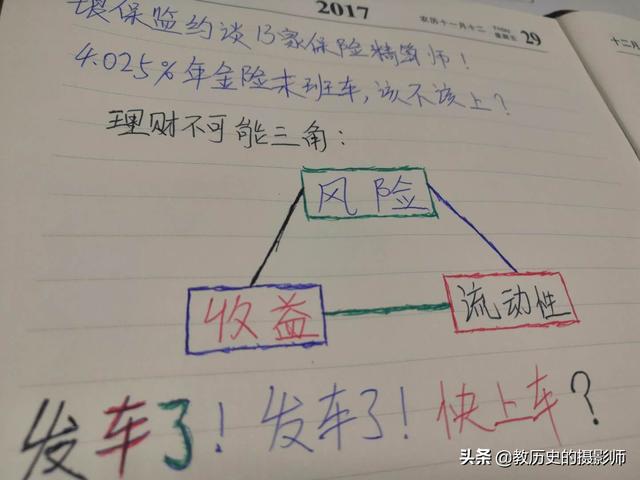 2017
农历十一月十二
星期五
29
十二月
银保监约谈13家保险精算师！
4.025%年金险末班车，该不该上？
理财不可能三角：
风险
收益
流动性
发车了！发车了！快上车？
头条 @教历史的摄影师